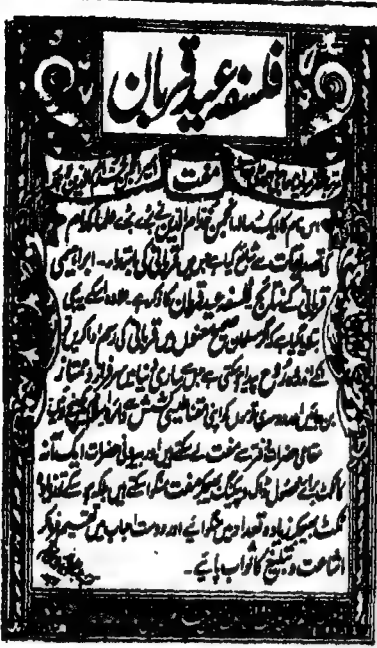 فلسفہ عید قربان
مفت انجمن خدام الدین
اس نام کا ایک رسالہ انجمن خدام الدین نے بڑے بڑے علماء کرام
کی تصدیقات سے شائع کیا ہے جس میں قربانی کی ابتداء۔ ابراہیمی
قربانی کے نتائج اور فلسفہ عید قربان کا ذکر ہے۔ علاوہ اسکے یہ بھی
بتلایا گیا ہے کہ اگر مسلمان صحیح معنوں میں قربانی کی رسم ادا کریں تو
انکے اندر وہ روح پیدا ہو سکتی ہے جس سے ساری دنیا میں سرفراز و ممتاز
بن جائیں اور دوسری قوموں کو اپنی مقناطیسی کشش سے دائرہ اسلام میں کھینچ لائیں
مقامی حضرات دفتر سے مفت لے سکتے ہیں اور بیرونی حضرات ایک آنہ
کا ٹکٹ برائے محصول ڈاک و پیکنگ بھیج کر مفت منگوا سکتے ہیں بلکہ ہو سکے تو زیادہ
ٹکٹ بھیج کر زیادہ تعداد میں منگوائیے اور دوست احباب میں تقسیم فرما کر
اشاعت و تبلیغ کا ثواب پائیے۔